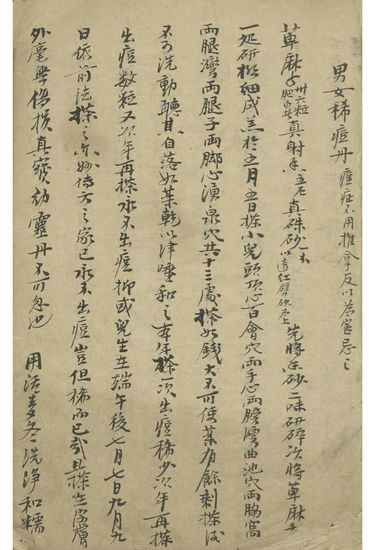 男女稀痘丹 痘症不用推拿反以爲害忌之
萆麻子卅六粒肥白者真射香五厘真硃砂一不以透紅劈砂爲上先將香砂二味研碎次將萆麻子
一处研極細成羔於五月五日搽小兒頭頂心百會穴両手心両膽灣曲池穴両脇窩
両腿灣両腿子両脚心湧泉穴共十三處搽如錢大不可使葯有餘剩搽後
不可洗動聽其自落如葯乾以津唾和之本年搽次出痘稀少次年再搽
出痘数粒又次年再搽永不出痘抑或兒生在端午後七月七日九月九
日依前法搽之亦妙傳方之家已永不出痘豈但稀而已哉且搽在皮膚
外毫無傷損真寶幼靈丹不可忽也 用法麥冬洗淨和糯